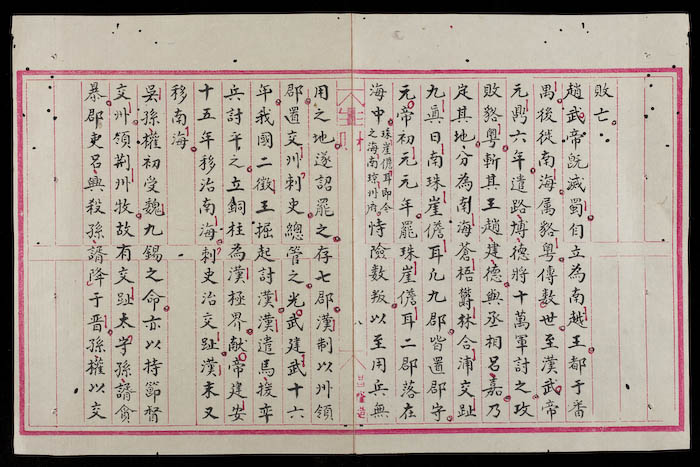 敗亡
趙武帝既滅蜀自立為南越王都于番
禺後徙南海属貉粤傳數世至漢武帝
元鼎六年遣路博德將十萬軍討之攻
敗貉粤斬其王趙建德與丞相呂嘉乃
定其地分為南海蒼梧欝林合浦交趾
九真日南珠崖儋耳凢九郡皆置郡守
元帝初元元年罷珠崖儋耳二郡落在
海中珠崖儋耳即今之海南琼州府恃險數叛以至用兵無
用之地遂詔罷之存七郡漢制以州領
郡置交州刺史總管之光武建武十六
年我國二徵王掘起討漢漢遣馬援率
兵討平之立銅柱為漢極界献帝建安
十五年移治南海刺史治交趾漢末又
移南海
吳孫權初受魏九錫之命亦以持節督
交州領荆州牧故有交趾太守孫諝貪
暴郡吏呂興殺孫諝降于晋孫權以交